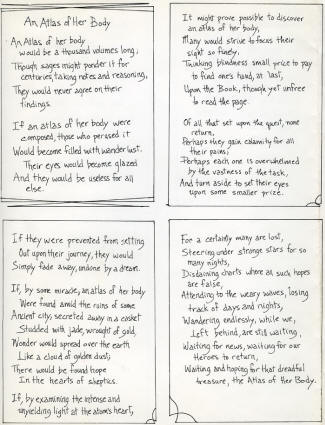 An Atlas of Her Body
An Atlas of her body
would be a thousand volumes long;
Though sages might ponder it for
centuries, taking notes and reasoning,
They would never agree on their
findings.
If an atlas of her body were
composed, those who perused it
Would become filled with wanderlust.
Their eyes would become glazed
And they would be useless for all
else.
It might prove possible to discover
an atlas of her body,
Many would strive to focus their
sight so finely.
Thinking blindness small price to pay
to find one's hand, at last,
Upon the Book, though yet unfree
to read the page.
Of all that set upon the quest, none
return,
Perhaps they gain calamity for all
their pains;
Perhaps each one is overwhelmed
by the vastness of the task,
And turn aside to set their eyes
upon some smaller prize.
If they were prevented from setting
Out upon their journey, they would
Simply fade away, undone by a dream.
If, by some miracle, an atlas of her body
Were found amid the ruins of some
Ancient city, secreted away in a casket
Studded with jade, wrought of gold,
Wonder would spread over the earth
Like a cloud of golden dust;
There would be found hope
In the hearts of skeptics.
If, by examining the intense and
unyielding light at the atom's heart,
For a certainty many are lost,
Steering under strange stars for so
many nights,
Disdaining charts where all such hopes
are false,
Attending to the weary waves, losing
track of days and nights,
Wandering endlessly, while we,
left behind, are still waiting,
Waiting for news, waiting for our
Heroes to return,
Waiting and hoping for that dreadful
treasure, the Atlas of Her Body.